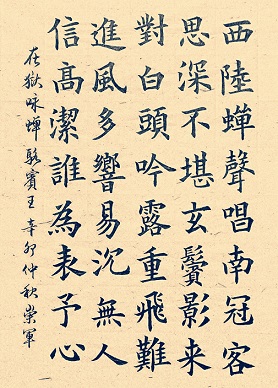 西陸蟬聲唱南冠客
思深不堪玄鬢影来
對白頭吟露重飛難
進風多響易沉無人
信高潔誰為表予心
在獄咏蟬 駱賓王 辛卯仲秋崇軍